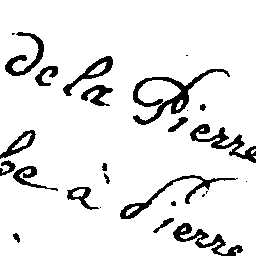 de la Pierre
be à Pierre